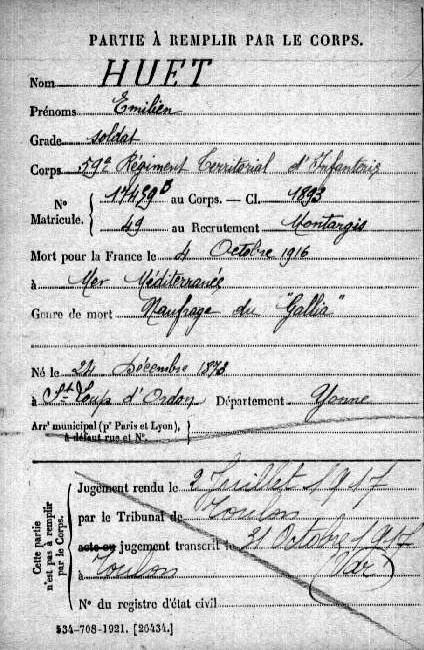 PARTIE À REMPLIR PAR LE CORPS.
Nom HUET
Prénoms Emilien
Grade soldat
Corps 59e Régiment Territorial d'Infanterie
No Matricule. 17489B au Corps. — Cl. 1893
49 au Recrutement Montargis
Mort pour la France le 4 Octobre 1916
à Mer Méditerranée
Genre de mort Naufrage du "Gallia"
Né le 24 Décembre 1873
à St Loup d'Ordon Département Yonne
Arrt municipal (pr Paris et Lyon),
à défaut rue et No.
Cette partie n'est pas à remplir par le Corps.
Jugement rendu le 3 Juillet 1917
par le Tribunal de Toulon
acte ou jugement transcrit le 31 Octobre 1917
à Toulon (Var)
No du registre d'état civil
534-708-1921. [26434.]